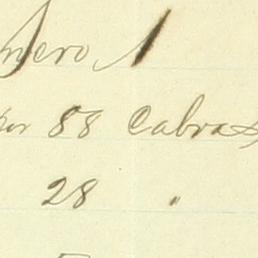 mero 1
por 88 Cabras
28 "